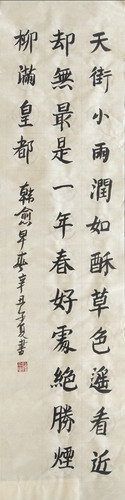 天街小雨潤如酥草色遙看近
却無最是一年春好處絕勝煙
柳滿皇都 韓愈早春辛丑年夏書